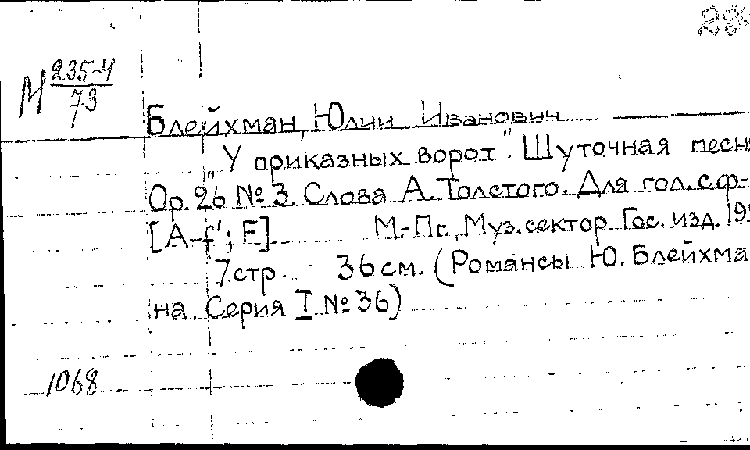 М 235-4
73
Блейхман, Юлий Иванович
„У приказных ворот". Шуточная песн
Ор. 26 № 3. Слова А. Толстого. Для гол. с ф-
[A-f'; E] М.-Пг., Муз. сектор Гос. изд. 19
7 стр. 36 см. (Романсы Ю. Блейхма
на Серия I № 36)
1068